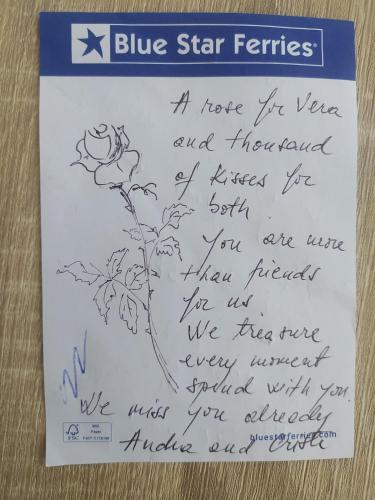 Blue Star Ferries
A rose for Vera
and thousand
of kisses for
both.
You are more
than friends
for us.
We treasure
every moment
spend with you.
We miss you already
bluestarferries.com
and
FSC
MIX
Paper